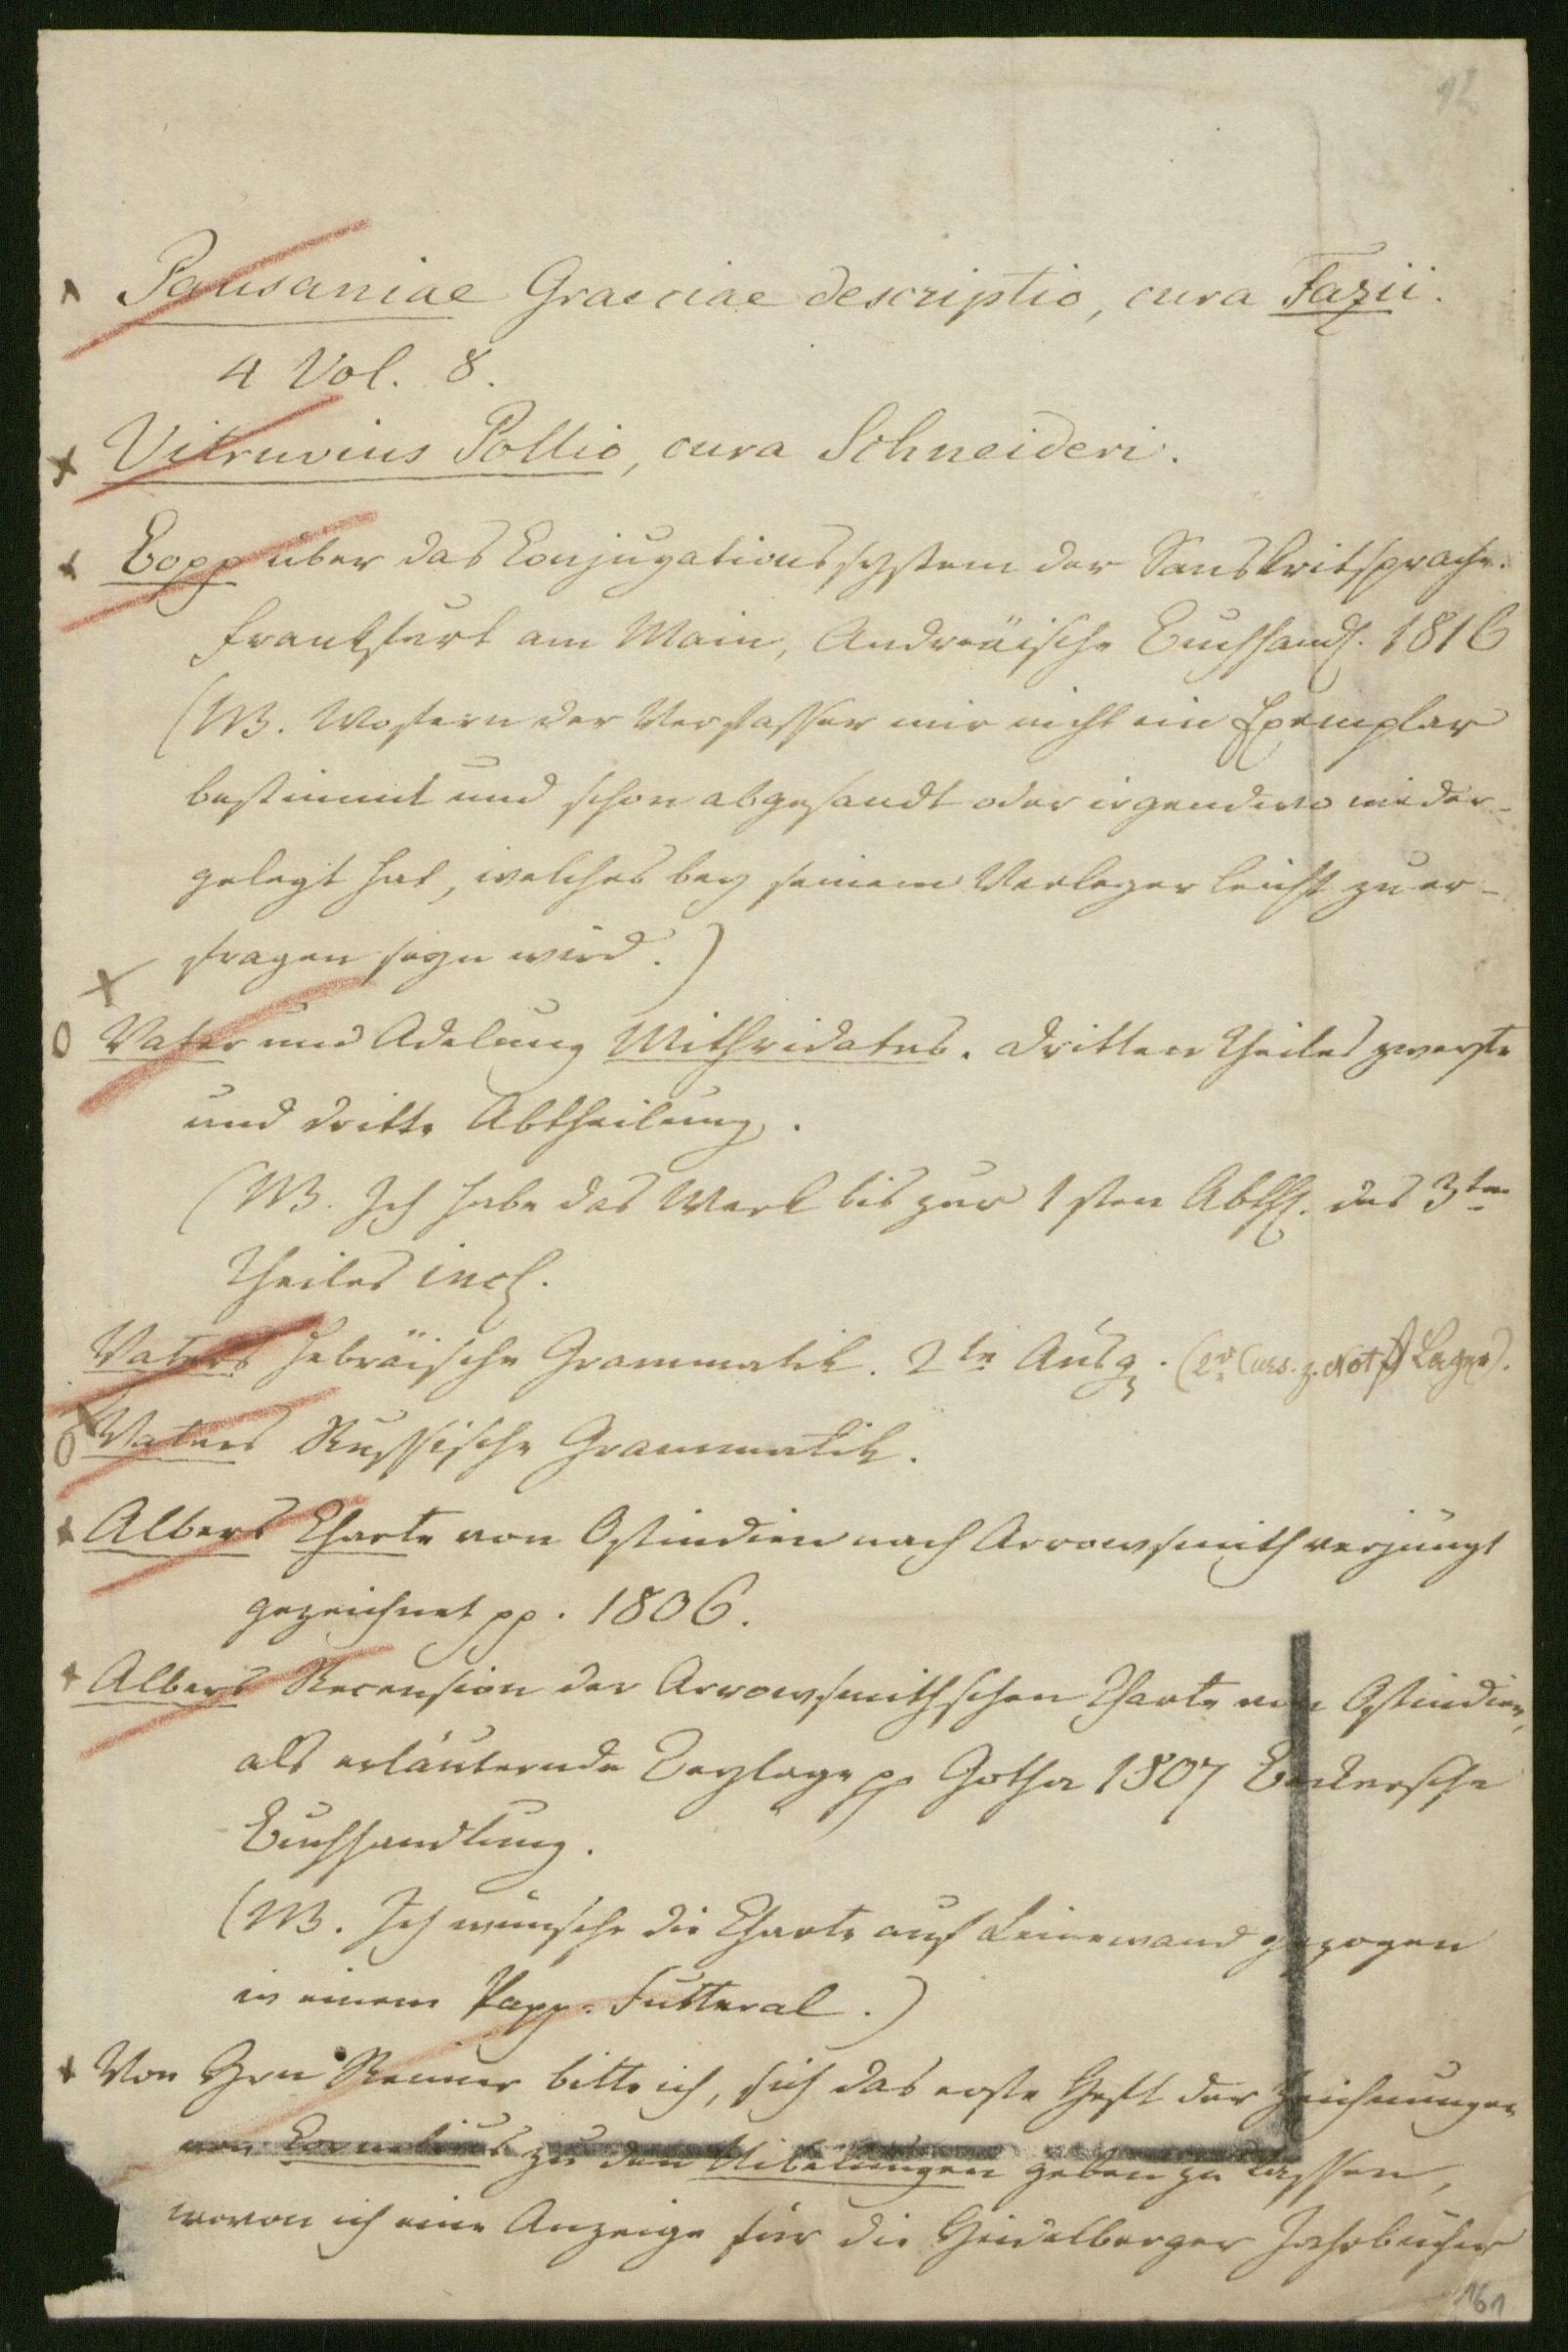 12
Pausaniae Graeciae descriptio, cura Fazii.
4 Vol. 8.
Vitruvius Pollio, cura Schneideri.
Bopp über das Conjugationssystem der Sanskritsprache.
Frankfurt am Main, Andreäische Buchhandl. 1816
(NB. Wofern der Verfasser mir nicht ein Exemplar
bestimmt und schon abgesandt oder irgendwo nieder-
gelegt hat, welches bey seinem Verleger leicht zu er-
fragen seyn wird.)
Vater und Adelung Mithridates. Dritten Theiles zweyte
und dritte Abtheilung.
(NB. Ich habe das Werk bis zur 1sten Abth. des 3ten
Theiles incl.
Vaters Hebräische Grammatik. 2te Ausg. (2r Curs. z. Lager).
Vaters Russische Grammatik.
Albers Charte von Ostindien nach Arrowsmith verjüngt
gezeichnet pp. 1806.
Albers Recension der Arrowsmithschen Charte von Ostindien,
als erläuternde Beylage pp Gotha 1807 Beckersche
Buchhandlung.
(NB. Ich wünsche die Charte auf Leinewand gezogen
in einem Papp-Futteral.)
Von Hrn Reimer bitte ich, sich das erste Heft der Zeichnungen
von Cornelius zu den Nibelungen geben zu lassen,
wovon ich eine Anzeige für die Heidelberger Jahrbücher
161